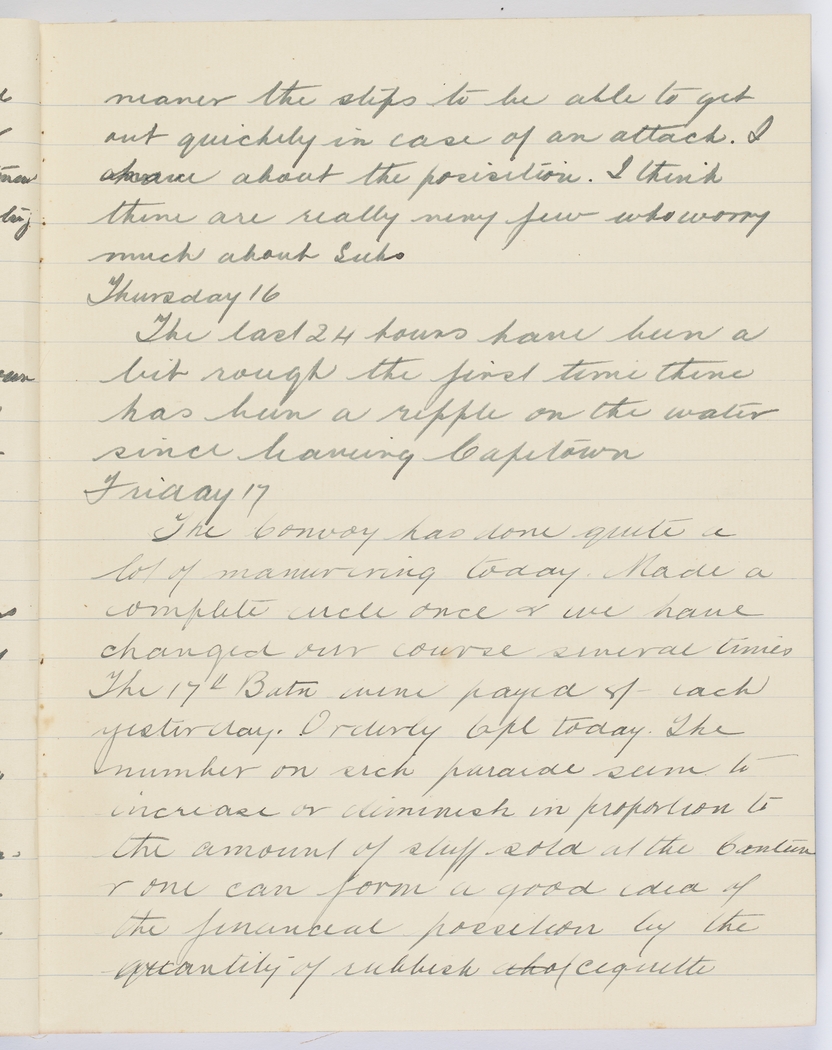 nearer the steps to be able to get
out quickly in case of an attack. I
about the posisition. I think
there are really very few who worry
much about Subs
Thursday 16
The last 24 hours have been a
bit rough the first time there
has been a ripple on the water
since leaving Capetown
Friday 17
The Convoy has done quite a
lot of manuvering today. Made a
complete circle once & we have
changed our course several times
The 17th Batn were payed £1 each
yesterday. Orderly Cpl today. The
number on sick paraide seem to
increase or diminish in proportion to
the amount of stuff sold at the Canteen
& one can form a good idea of
the financial possition by the
quantity of rubbish (cequette